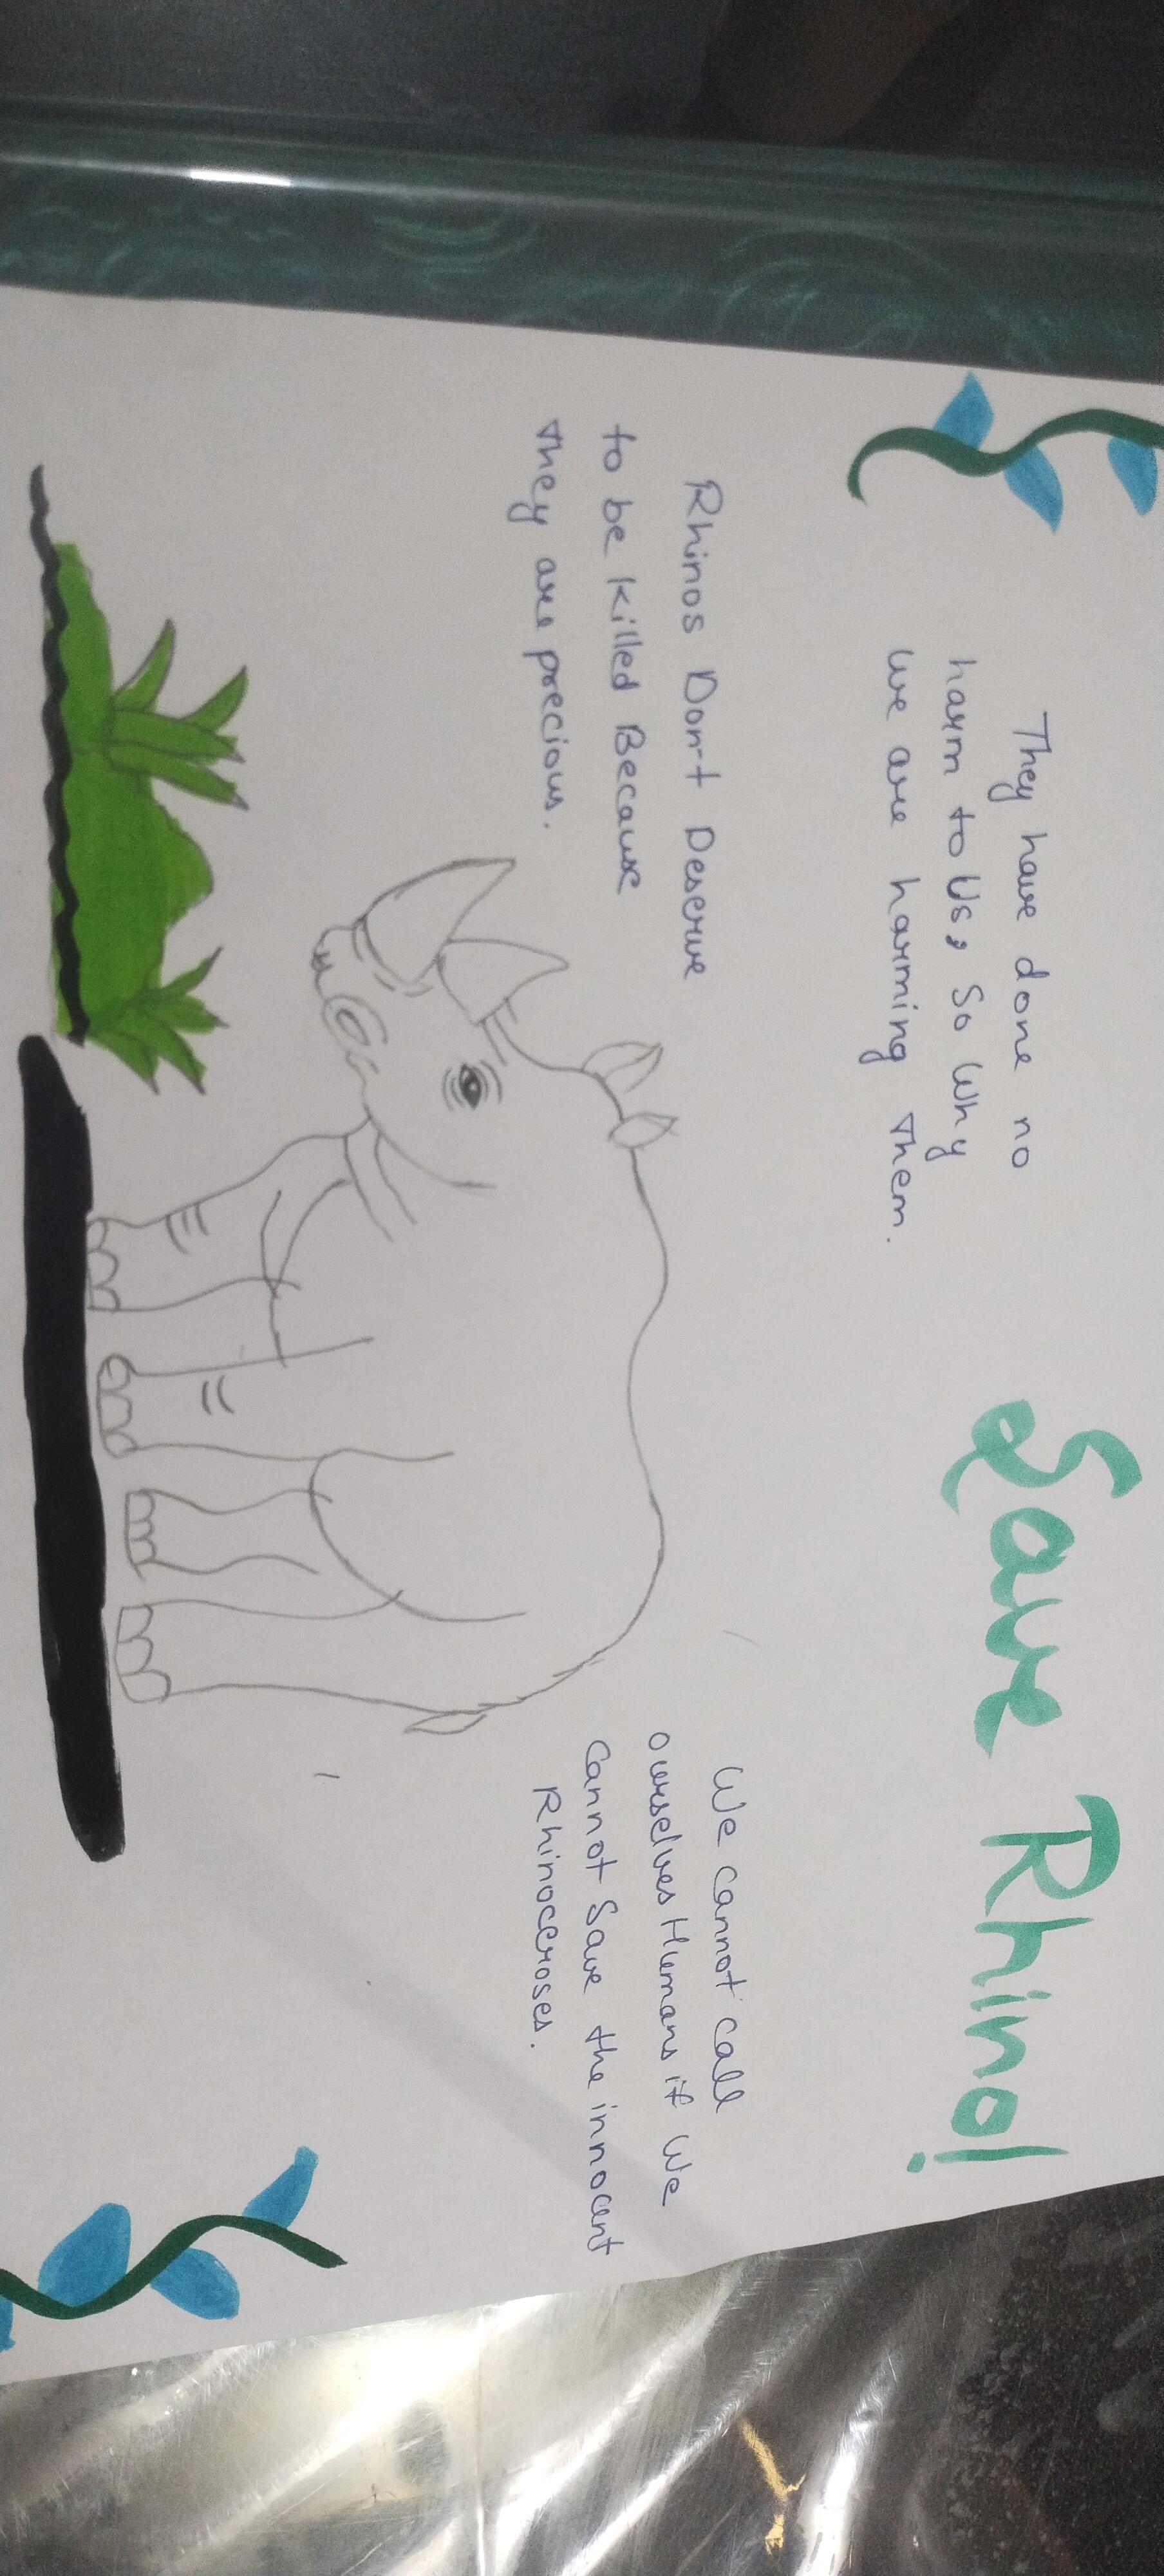 Save Rhino!
They have done no
harm to Us, So Why
we are harming Them.
Rhinos Don't Deserve
to be killed Because
They are precious.
We cannot call
ourselves Humans if We
Cannot Save the innocent
Rhinoceroses.